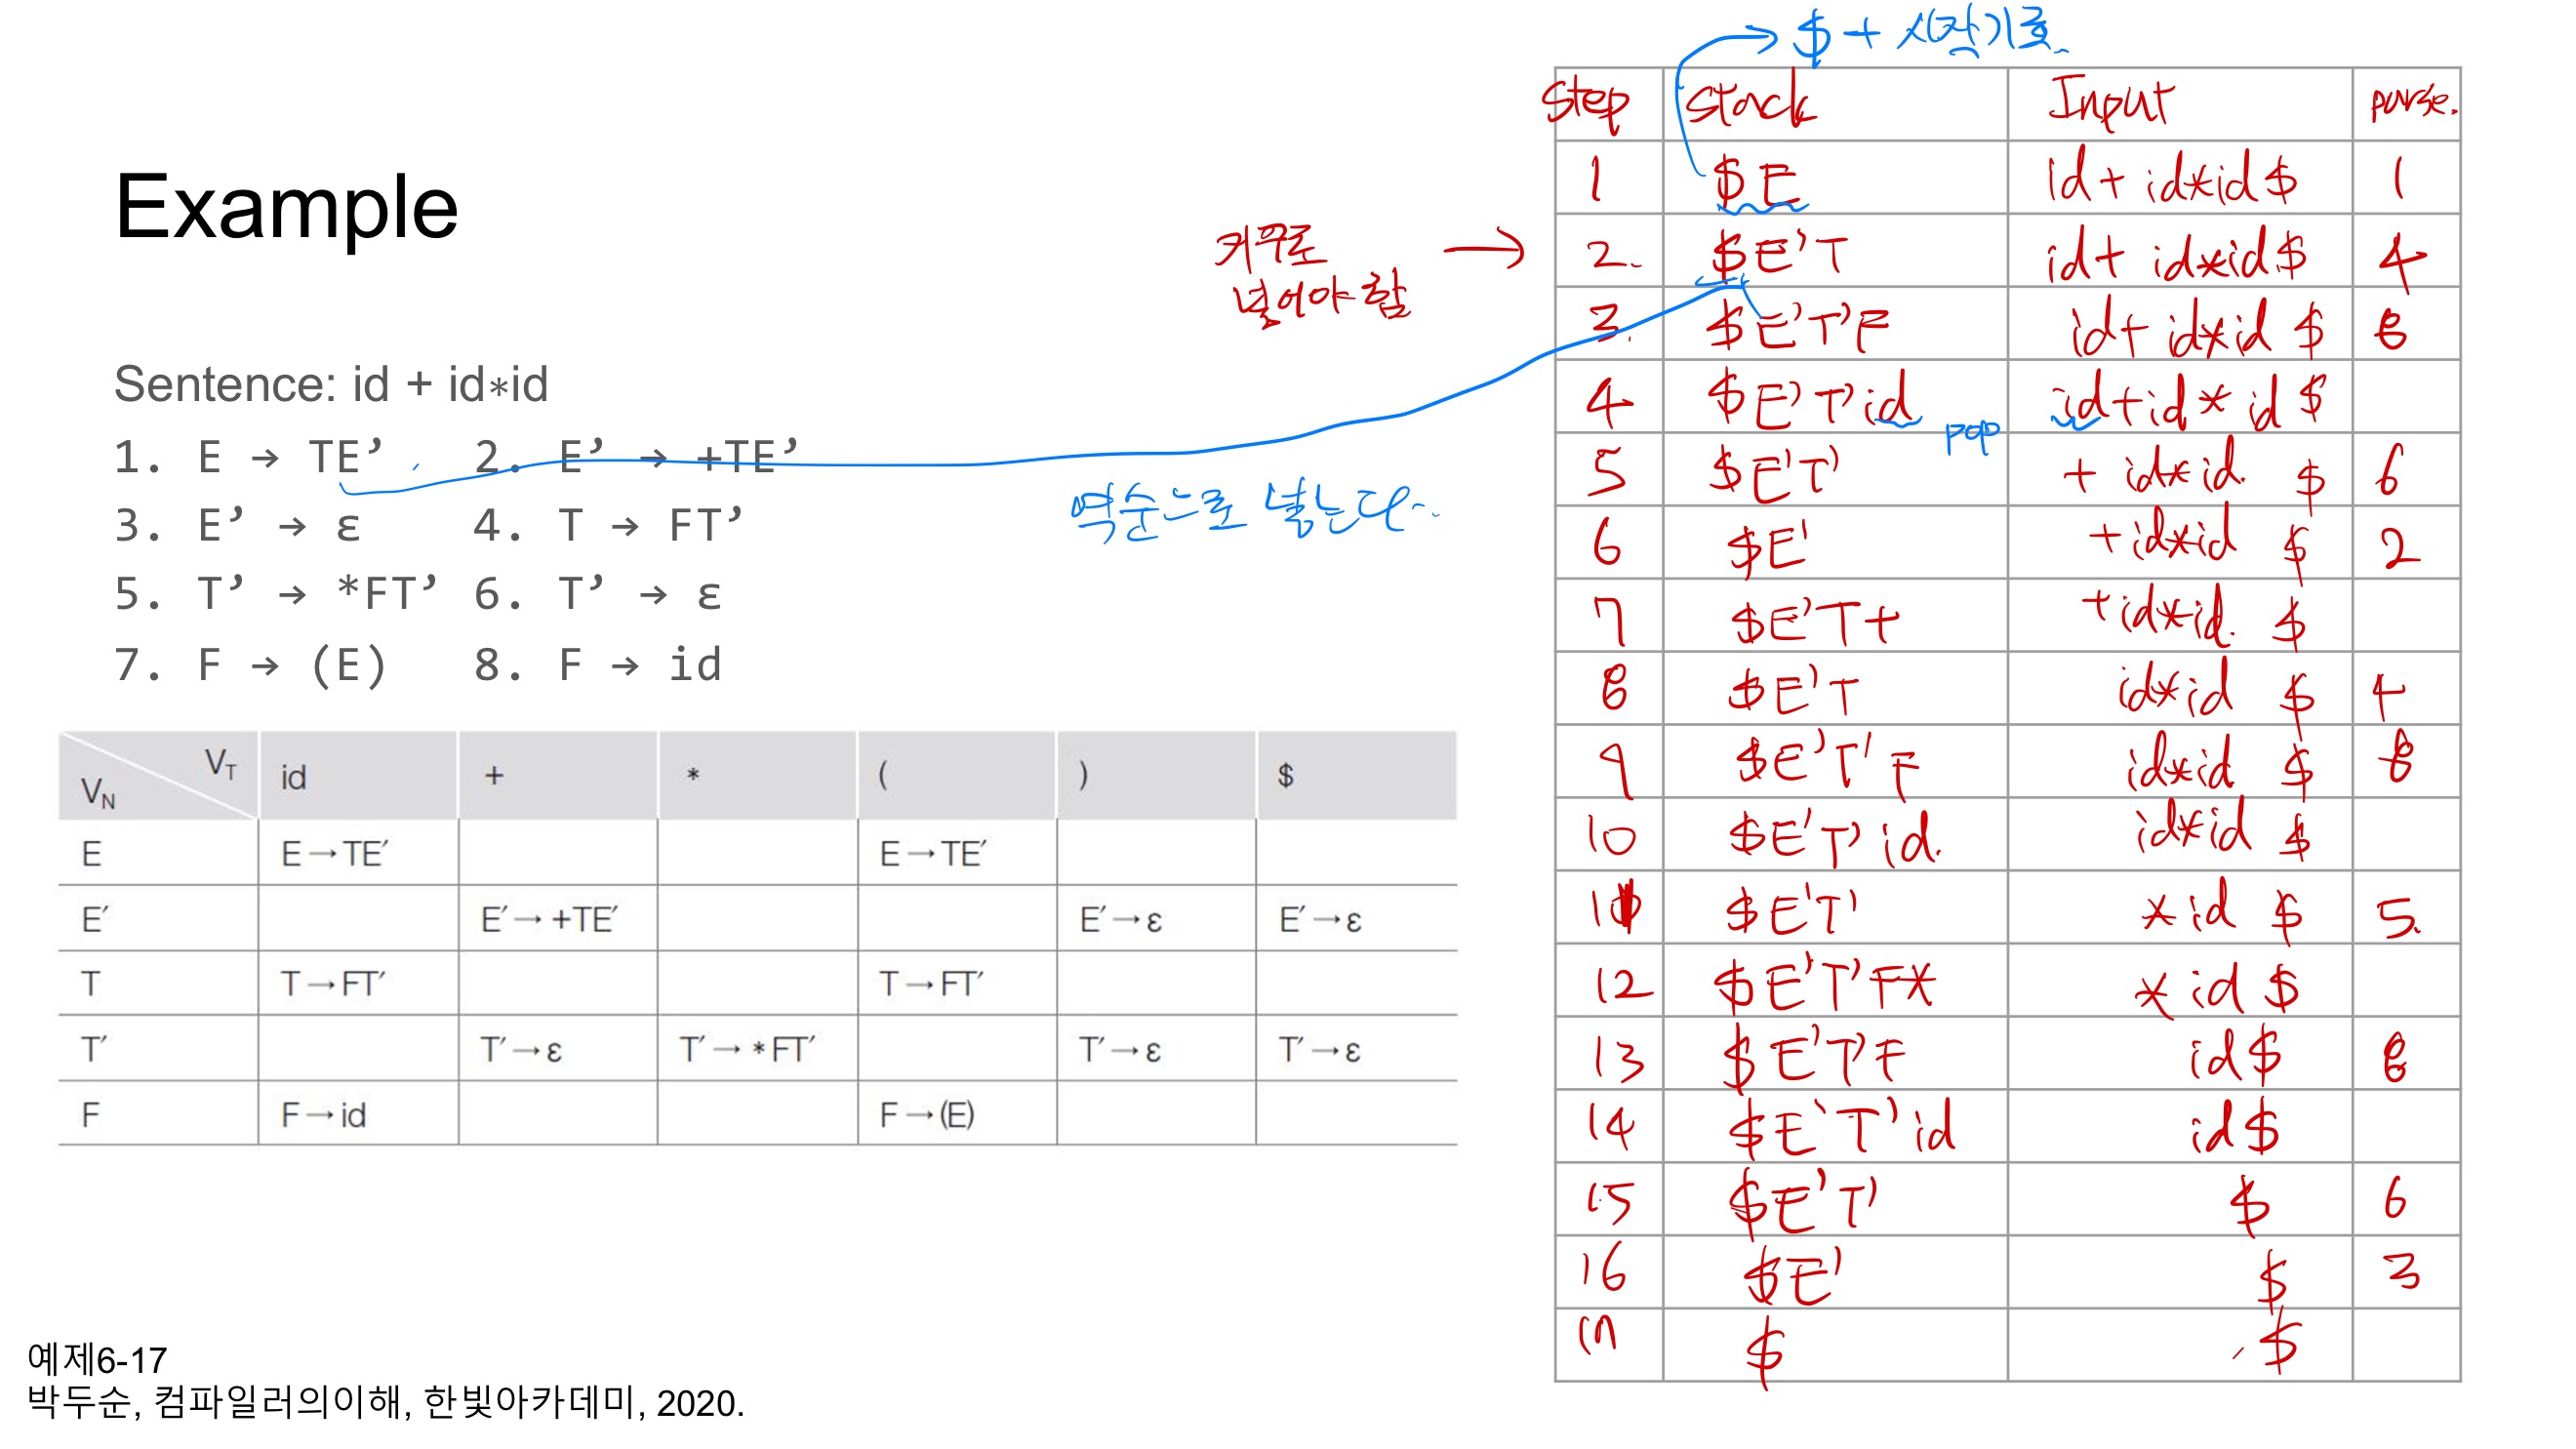 Example
Sentence: id + id*id
1. E → TE’ 2. E’ → +TE’
3. E’ → ε 4. T → FT’
5. T’ → *FT’ 6. T’ → ε
7. F → (E) 8. F → id
V_N V_T id + * ( ) $
E E→TE′ E→TE′
E′ E′→+TE′ E′→ε E′→ε
T T→FT′ T→FT′
T′ T′→ε T′→*FT′ T′→ε T′→ε
F F→id F→(E)
예제6-17
박두순, 컴파일러의이해, 한빛아카데미, 2020.
거꾸로
넣어야 함 →
역순으로 넣는다.
→ $ + 시작기호
Step Stack Input parse.
1 $E id+id*id$ 1
2. $E'T id+id*id$ 4
3. $E'T'F id+id*id$ 8
4 $E'T'id pop id+id*id$
5 $E'T' +id*id.$ 6
6 $E' +id*id$ 2
7 $E'T+ +id*id.$
8 $E'T id*id$ 4
9 $E'T'F id*id$ 8
10 $E'T'id. id*id$
11 $E'T' *id$ 5.
12 $E'T'F* *id$
13 $E'T'F id$ 8
14 $E'T'id id$
15 $E'T' $ 6
16 $E' $ 3
17 $ $